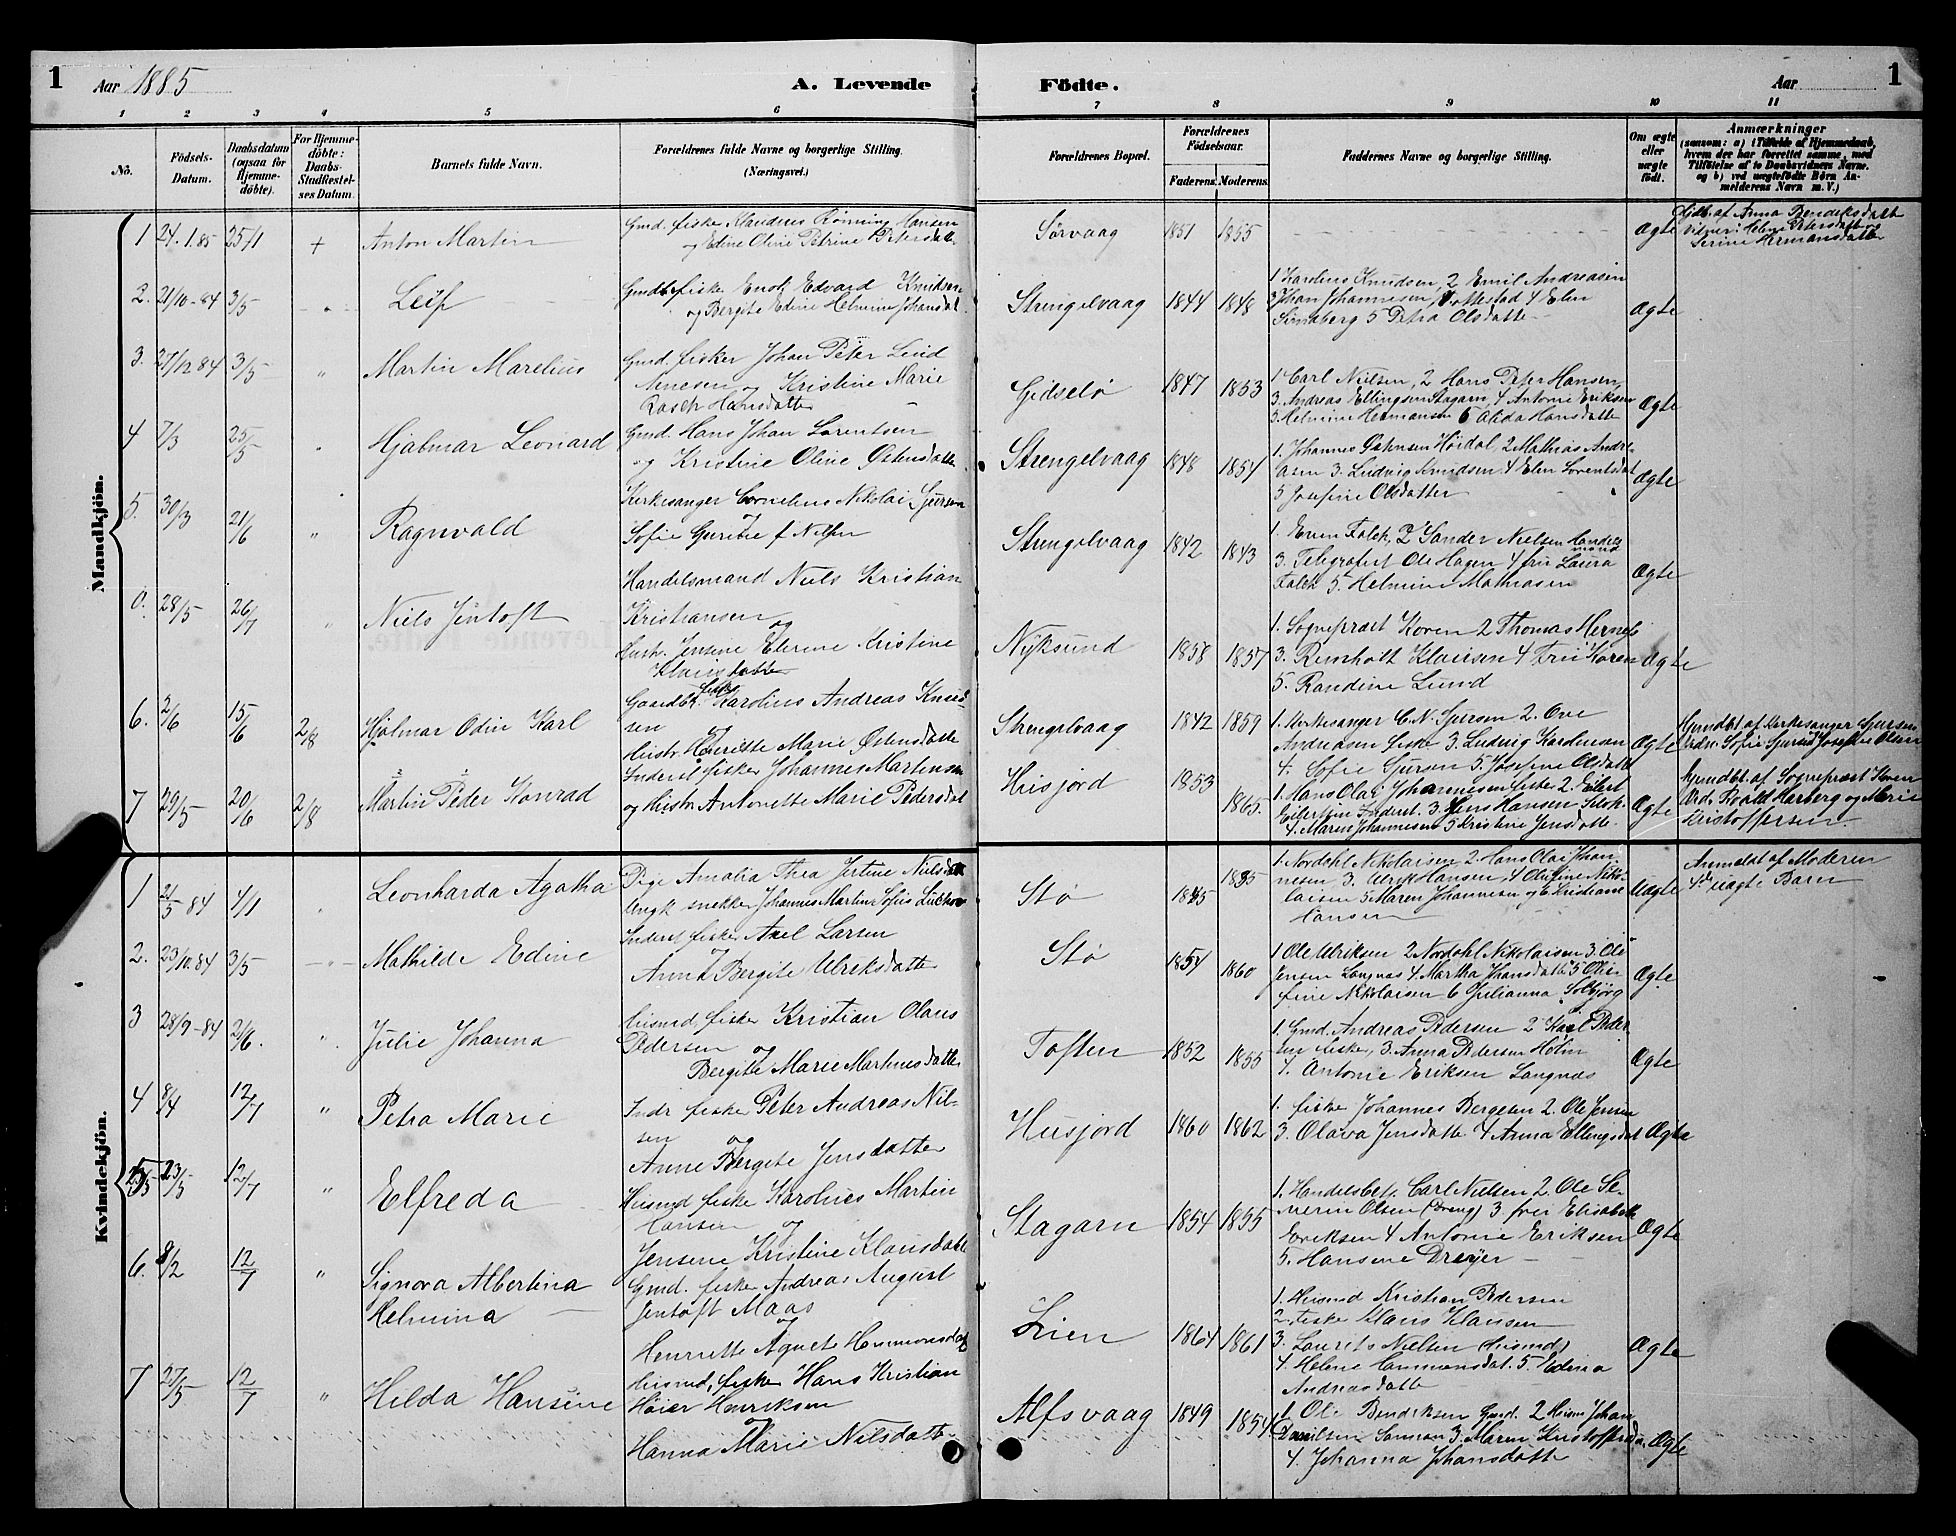 1 Aar 1885 A. Levende Födte. Aar 1
1 2 3 4 5 6 7 8 9 10 11
No.
Födsels-
Datum.
Daabsdatum
(ogsaa for
Hjemme-
döbte).
For Hjemme-
döbte:
Daabs-
Stadfæstel-
ses Datum.
Barnets fulde Navn.
Forældrenes fulde Navne og borgerlige Stilling.
(Næringsvei.)
Forældrenes Bopæl.
Forældrenes
Födselsaar.
Faderens. Moderens.
Faddernes Navne og borgerlige Stilling.
Om ægte
eller
uægte
födt.
Anmærkninger
(saasom: a) i Tilfælde af Hjemmedaab,
hvem der har forrettet samme, med
Tilföielse af to Daabsvidners Navne.
og b) ved uægtefödte Börn An-
melderens Navn m. V.)
Mandkjön.
1 24.1.85 25/1 + Anton Martin
Gmd. fisker Rönning Hansen
og Edine Oline Petrine Petersdatt
Sörvaag 1851 1855 Ægte
Hjdb. af Anna Bendiksdatt
Vidner: Helene Petersdatt og
Serine Hermansdatte
2. 21/10-84 3/5 Leif
fisker Enok Edvard Knutsen
og Bergite Edine Helmine Johansdat
Strengelvaag 1844 1848
1 Karolius Knudsen, 2 Emil Andreasen
3 Johan Johannesen 4 Elen
5 Petra Olsdatte
Ægte
3. 27/12 84 3/5 " Martin Marelius
Gmd. fisker Johan Peter Lind
Arnesen og Kristine Marie
Rasch Hansdatte
Gidselö 1847 1853
1 Carl Nielsen, 2 Hans Peter Hansen,
3. Andreas Ellingsen Stagarn, 4 Antonie Eriksen
5. Helmine Hermansen 6 Alida Hansdatte
Ægte
4 7/3 25/5 " Hjalmar Leonard
Gmd. Hans Johan Lorentsen
og Kristine Oline Östensdatte
Strengelvaag 1848 1854
1. Johannes Hördal, 2 Mathias Andre-
asen 3. Ludvig Knudsen 4 Elen Lorentsdat
5 Josefine Olsdatter
Ægte
5. 30/3 21/6 " Ragnvald
Kirkesanger Cornelius Nikolai Sjursen
og
Sofie Guritie f Nilsen
Strengelvaag 1842 1843
1. Even Falch, 2 Sander Nielsen Handels
mand
3. Telegrafist Ole Hagen 4 fru Laura
Falch 5. Helmine Mathiasen
Ægte
6. 28/5 26/7 " Niels Jentoft
Handelsmand Niels Kristian
Kristiansen
og
Hustr. Jensine Elerine Kristine
Klausdatte
Nyksund 1858 1857
1. Sogneprest Koren 2 Thomas Hernes
3. Reinholt Klausen 4 Fru Koren
5. Randine Lund
Ægte
6. 2/6 15/6 2/8 Hjalmar Odin Karl
fisker
Gaardbr. Karolius Andreas Knud-
sen
og
Hustr. Henritte Marie Östensdatte
Strengelvaag 1842 1859
1. Kirkesanger C. N. Sjursen 2. Ove
Andreasen fisker 3. Ludvig Karoliusen
4. Sofie Sjursen 5. Josefine Olsdatte
Ægte
Hjemdbt. af Kirkesanger Sjursen
Vidn. Sofie Sjursen Josefine Olsen
7 29/5 20/6 2/8 Martin Peder Konrad
Inderst fisker Johannes Martinsen
og Hustr. Antonette Marie Pedersdat
Husjord 1853 1865.
1. Hans Olai Johannesen fisker 2. Eilert
Eilertsen Inderst. 3. Jens Hansen
4. Maren Johannesen 5 Kristine Jensdatte
Ægte
Hjemdbt. af Sogneprest Koren
Vid. Roald Harberg og Marie
Kristoffersen
Kvindekjön.
1 2/5 84 4/1 Leonharda Agatha
Pige Amalia Thea Jertine Nielsdatt
Ungk snekker Johannes Martin Sofus
Stö 1845 1835
1. Nordahl Nikolaisen 2. Hans Olai Johan-
nesen 3. Ulrik Hansen 4 Olufine Niko-
laisen 5 Maren Johannesen og 6 Kristiane
Hansen
Uægte
Anmeldt af Moderen
4de uægte Barn
2. 23/10.84 3/5 Mathilde Edine
Inderst fisker Axel Larsen
og
Anna Bergite Ulriksdatte
Stö 1854 1860
1 Ole Ulriksen 2 Nordahl Nikolaisen 3. Ole
Jensen Langnæs 4. Martha Johansdatte 5 Olu-
fine Nikolaisen 6 Julianna Solbjörg
Ægte
3 28/9-84 21/6. " Julie Johanna
Husmd. fisker Kristian Olaus
Pedersen
og
Bergite Marie Martinusdatte
Toften 1852 1855
1. Gmd. Andreas Pedersen 2 Karl Peder-
sen fisker, 3. Anna Pedersen Holm
4. Antonie Eriksen Langnæs
Ægte
4 8/4 12/7 " Petra Marie
Indr fisker Peter Andreas Nil-
sen
og
Anne Bergite Jensdatter
Husjord 1860 1862
1. fisker Johannes Bergesen 2. Ole Jensen
3. Olava Jensdatte 4 Anna Ellingsdat
Ægte
5 23/5 12/7 " Elfreda
Husmd fisker Karolius Martin
Hansen
og
Jensine Kristine Klausdatte
Stagarn 1854 1855
1. Handelsbet. Carl Nielsen 2. Ole Se-
verin Olsen (Dreng) 3 frue Elisabeth
Eriksen 4 Antonie Eriksen
5. Hansine Dreyer
Ægte
6. 8/2 12/7 " Signora Albertina
Helmina
Gmd. fisker Andreas August
Jentoft Maas
og
Henriette Agnete Hemmonsdat
Lien 1864 1861
1. Husmd Kristian Pedersen
2. fisker Klaus Klausen
3. Laurits Nielsen (Husmd)
4. Helene Hemmonsdat. 5. Edina
Andreasdatte
Ægte
7 27/5 12/7 " Hilda Hansine
Husmd, fisker Hans Kristian
Höier Henriksen
og
Hanna Marie Nilsdatte
Alfsvaag 1849 1854
1. Ole Bendiksen Gmd. 2 Husm Johan
Danilsen 3. Maren Kristoffersda.
4. Johanna Johansdatte
Ægte